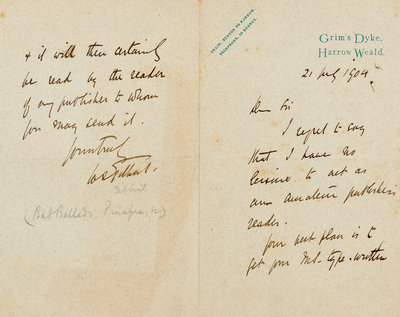 TRAIN, BUSHEY TO HARROW.
TELEPHONE, 19 BUSHEY.
Grim's Dyke,
Harrow Weald.
21 July 1904
Dear Sir
I regret to say
that I have no
leisure to act as
an amateur publisher's
reader.
Your best plan is to
get your MS. type-written
& it will then certainly
be read by the reader
of any publisher to whom
you may send it.
Yours truly
WS Gilbert.
(Bab Ballads, Pinafore,